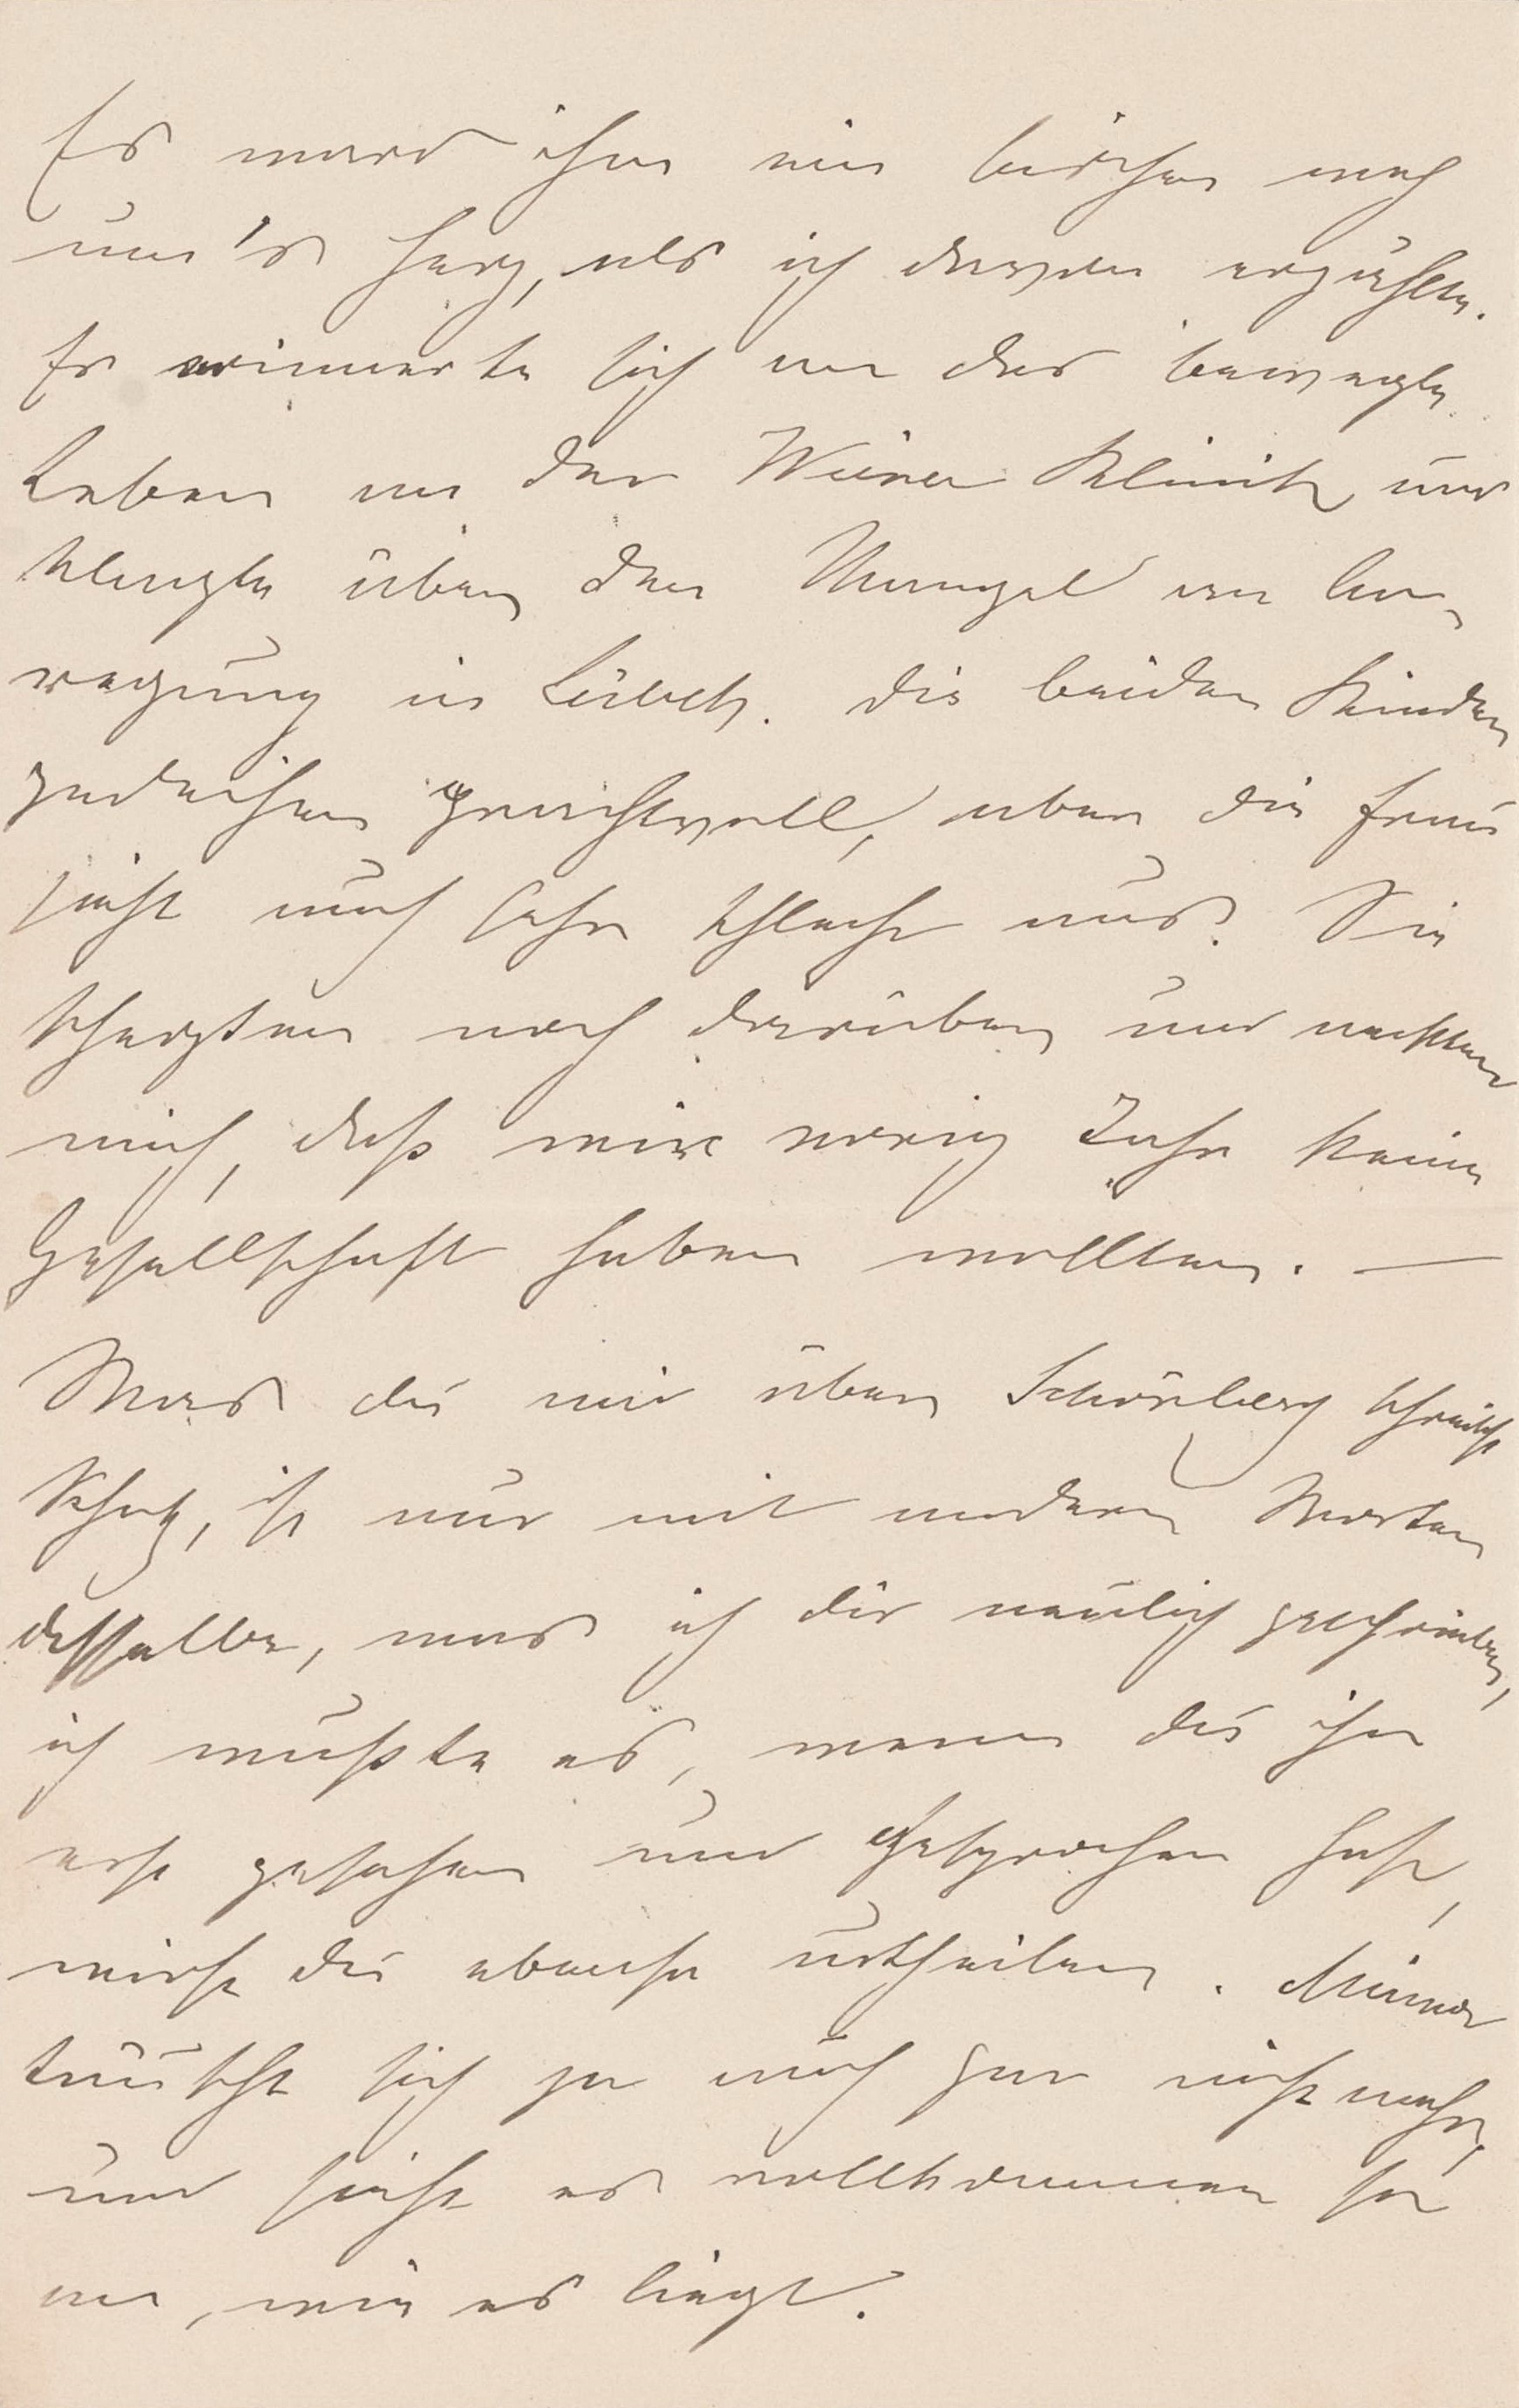 Es ward ihm ein bischen weh
um's Herz, als ich davon erzählte.
Er erinnerte sich an das bewegte
Leben an der Wiener Klinik und
klagte über den Mangel an An-
regung in Lübeck. Die beiden Kinder
gedeihen prachtvoll, aber die Frau
sieht noch sehr schlecht aus. Sie
scherzten noch darüber und neckten
mich, daß wir vorig Jahr keine
Gesellschaft haben wollten. —
Was du mir über Schönberg schreibst
Schatz, ist nur mit andern Worten
dasselbe, was ich dir neulich geschrieben,
ich wußte es, wenn du ihn
erst gesehen und gesprochen hast,
wirst du ebenso urtheilen. Minna
täuscht sich ja auch gar nicht mehr,
und sieht es vollkommen so
an, wie es liegt.